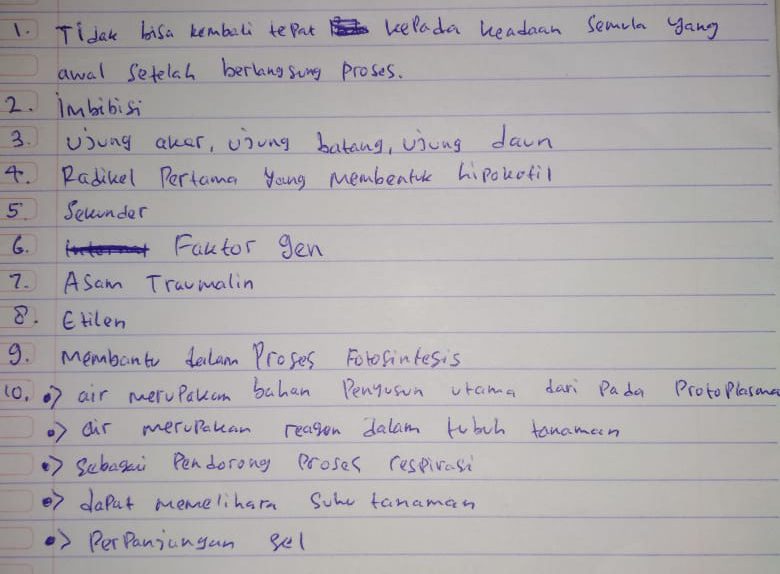 1. Tidak bisa kembali tepat kepada keadaan semula yang
awal setelah berlangsung proses.
2. imbibisi
3. ujung akar, ujung batang, ujung daun
4. Radikel Pertama yang membentuk hipokotil
5. Sekunder
6. Faktor gen
7. Asam Traumalin
8. Etilen
9. Membantu dalam Proses Fotosintesis
10. •> air merupakan bahan Penyusun utama dari pada Protoplasma
•> air merupakan reagen dalam tubuh tanaman
•> sebagai Pendorong Proses respirasi
•> dapat memelihara suhu tanaman
•> Perpanjangan sel